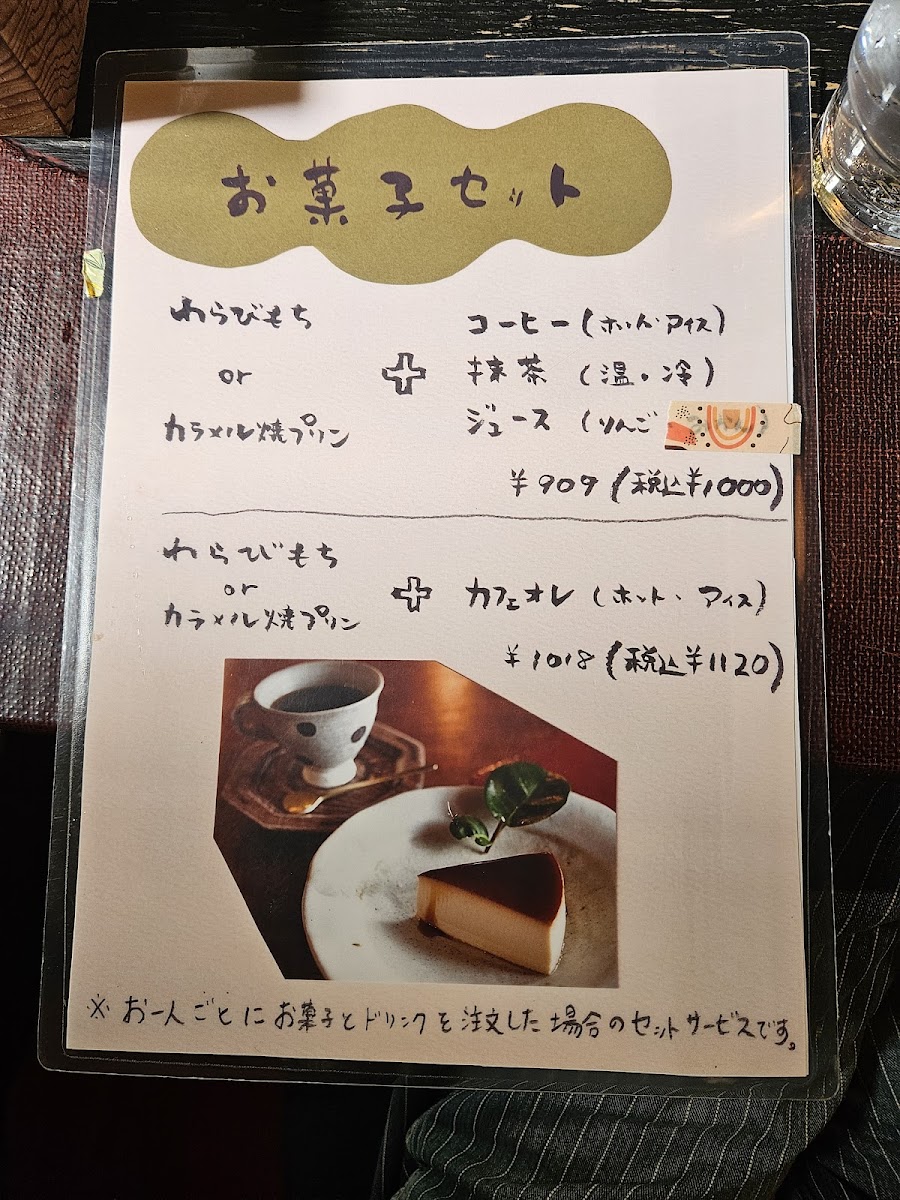 お菓子セット
わらびもち
or
カラメル焼プリン
コーヒー(ホット・アイス)
抹茶 (温・冷)
ジュース (りんご
¥909 (税込¥1000)
わらびもち
or
カラメル焼プリン
カフェオレ (ホット・アイス)
¥1018 (税込¥1120)
※ お一人ごとにお菓子とドリンクを注文した場合のセットサービスです。